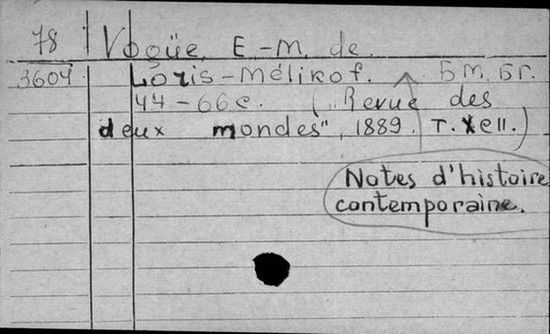 78 Vogüe, E.-M. de.
3604 Loris-Mélikof. Б.М. Б.г.
44-66с. ("Revue des
deux mondes", 1889. т. XCII.)
Notes d'histoire
contemporaine.